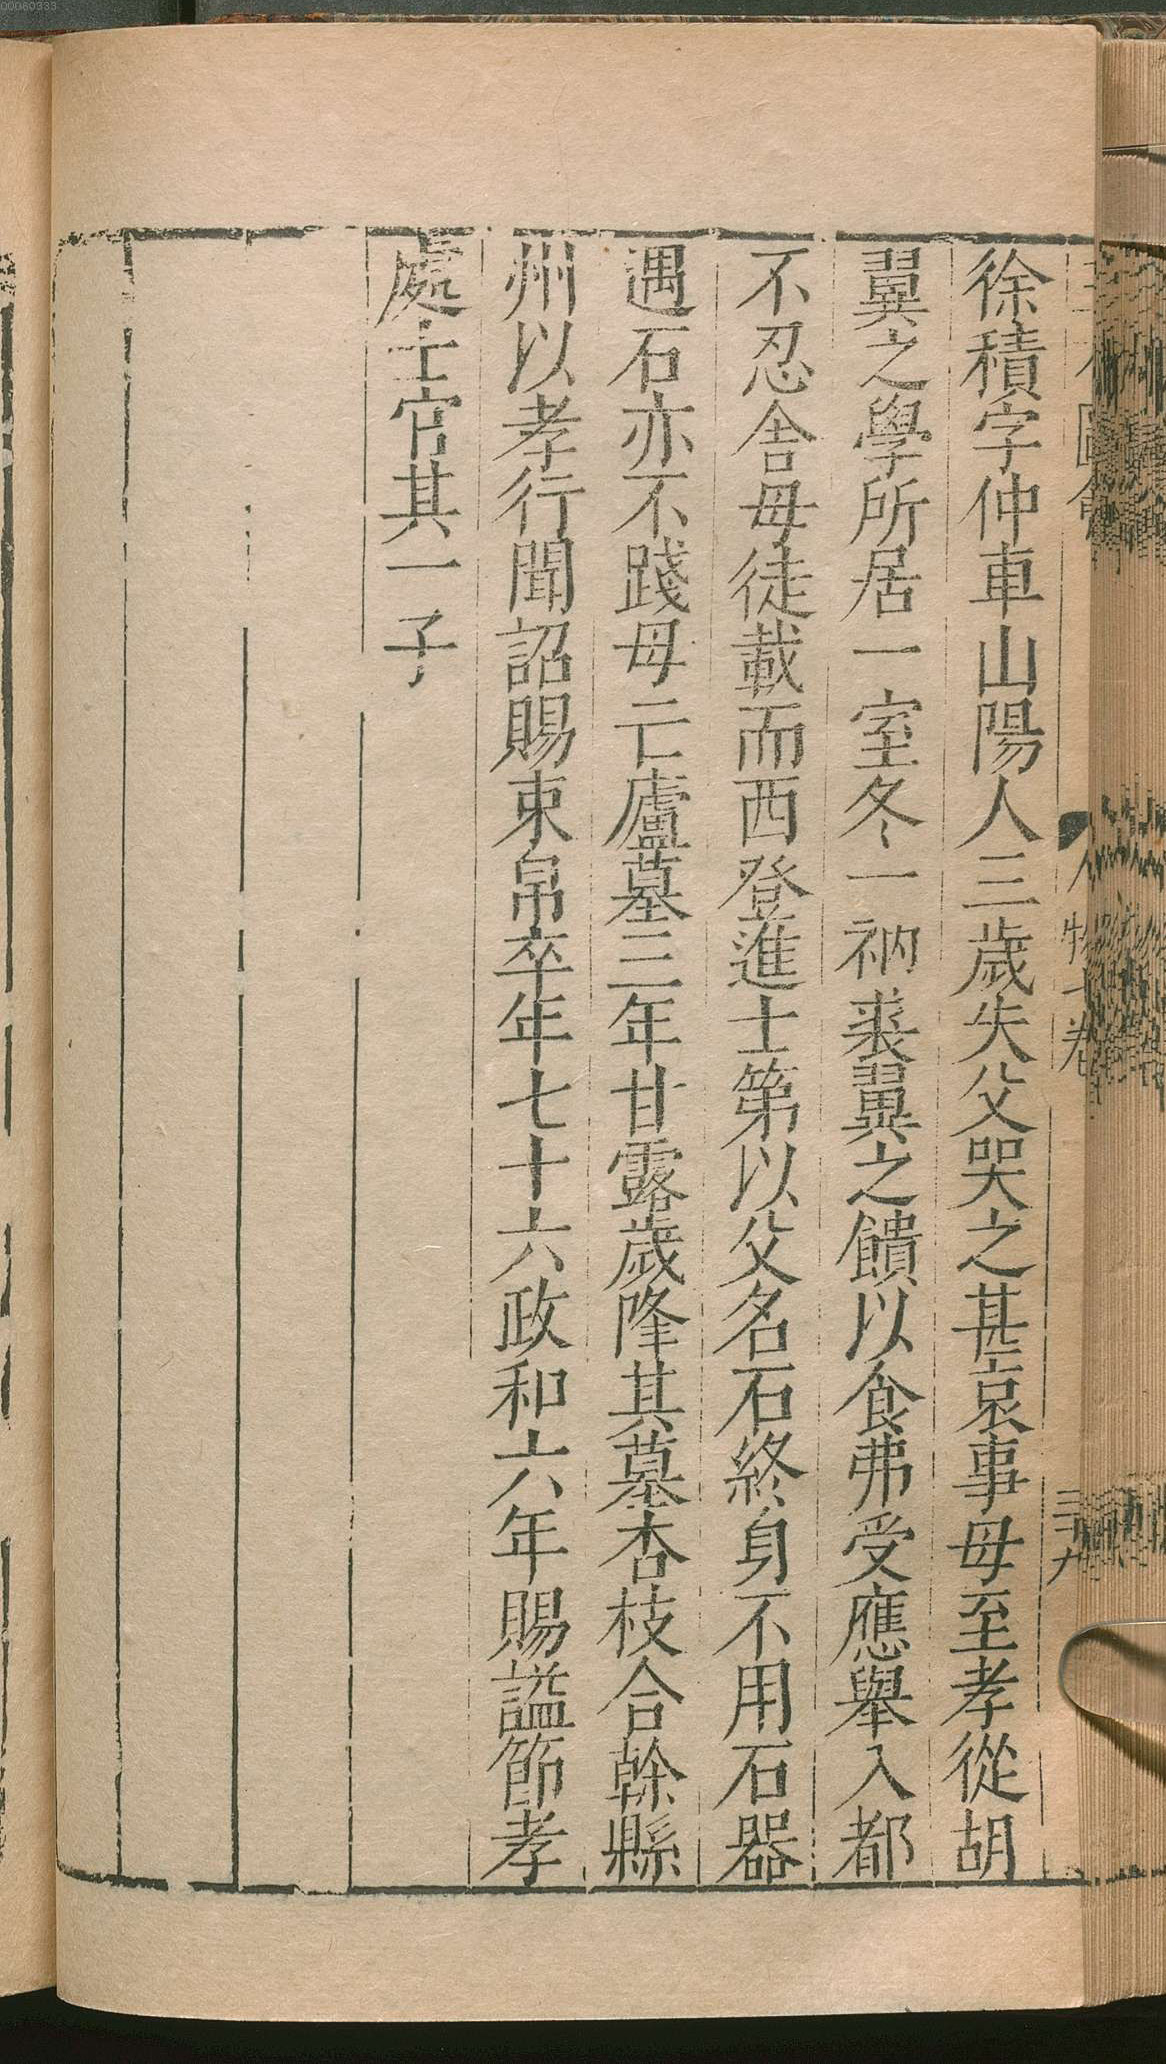 徐積字仲車山陽人三歲失父哭之甚哀事母至孝從胡
翼之學所居一室冬一衲裘翼之饋以食弗受應舉入都
不忍舍母徒載而西登進士第以父名石終身不用石器
遇石亦不踐母亡廬墓三年甘露歲降其墓杏枝合幹縣
州以孝行聞詔賜束帛卒年七十六政和六年賜謚節孝
處士官其一子
00060333